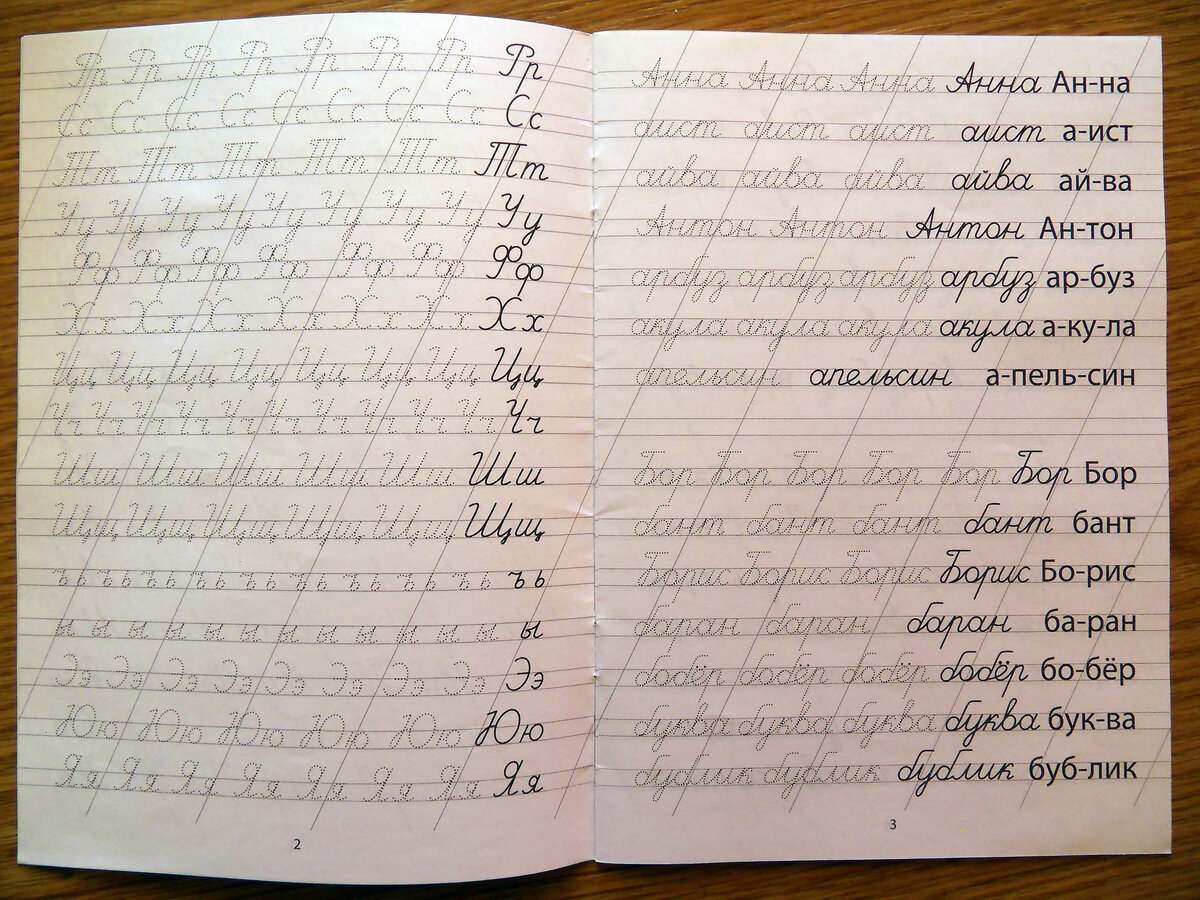 Рр Рр Рр Рр Рр Рр Рр Рр
Сс Сс Сс Сс Сс Сс Сс Сс Сс
Тт Тт Тт Тт Тт Тт
Уу Уу Уу Уу Уу Уу Уу Уу Уу
Фф Фф Фф Фф Фф Фф Фф
Хх Хх Хх Хх Хх Хх Хх
Цц Цц Цц Цц Цц Цц Цц Цц
Чч Чч Чч Чч Чч Чч Чч Чч Чч Чч Чч
Шш Шш Шш Шш Шш Шш
Щщ Щщ Щщ Щщ Щщ Щщ
ъь ъь ъь ъь ъь ъь ъь ъь ъь ъь ъь
ы ы ы ы ы ы ы ы ы ы ы ы ы
Ээ Ээ Ээ Ээ Ээ Ээ Ээ Ээ Ээ
Юю Юю Юю Юю Юю Юю
Яя Яя Яя Яя Яя Яя Яя Яя
2
Анна Анна Анна Анна Ан-на
аист аист аист аист а-ист
айва айва айва айва ай-ва
Антон Антон Антон Ан-тон
арбуз арбуз арбуз арбуз ар-буз
акула акула акула акула а-ку-ла
апельсин апельсин а-пель-син
Бор Бор Бор Бор Бор Бор Бор
бант бант бант бант бант
Борис Борис Борис Борис Бо-рис
баран баран баран ба-ран
бобёр бобёр бобёр бобёр бо-бёр
буква буква буква буква бук-ва
бублик бублик бублик буб-лик
3